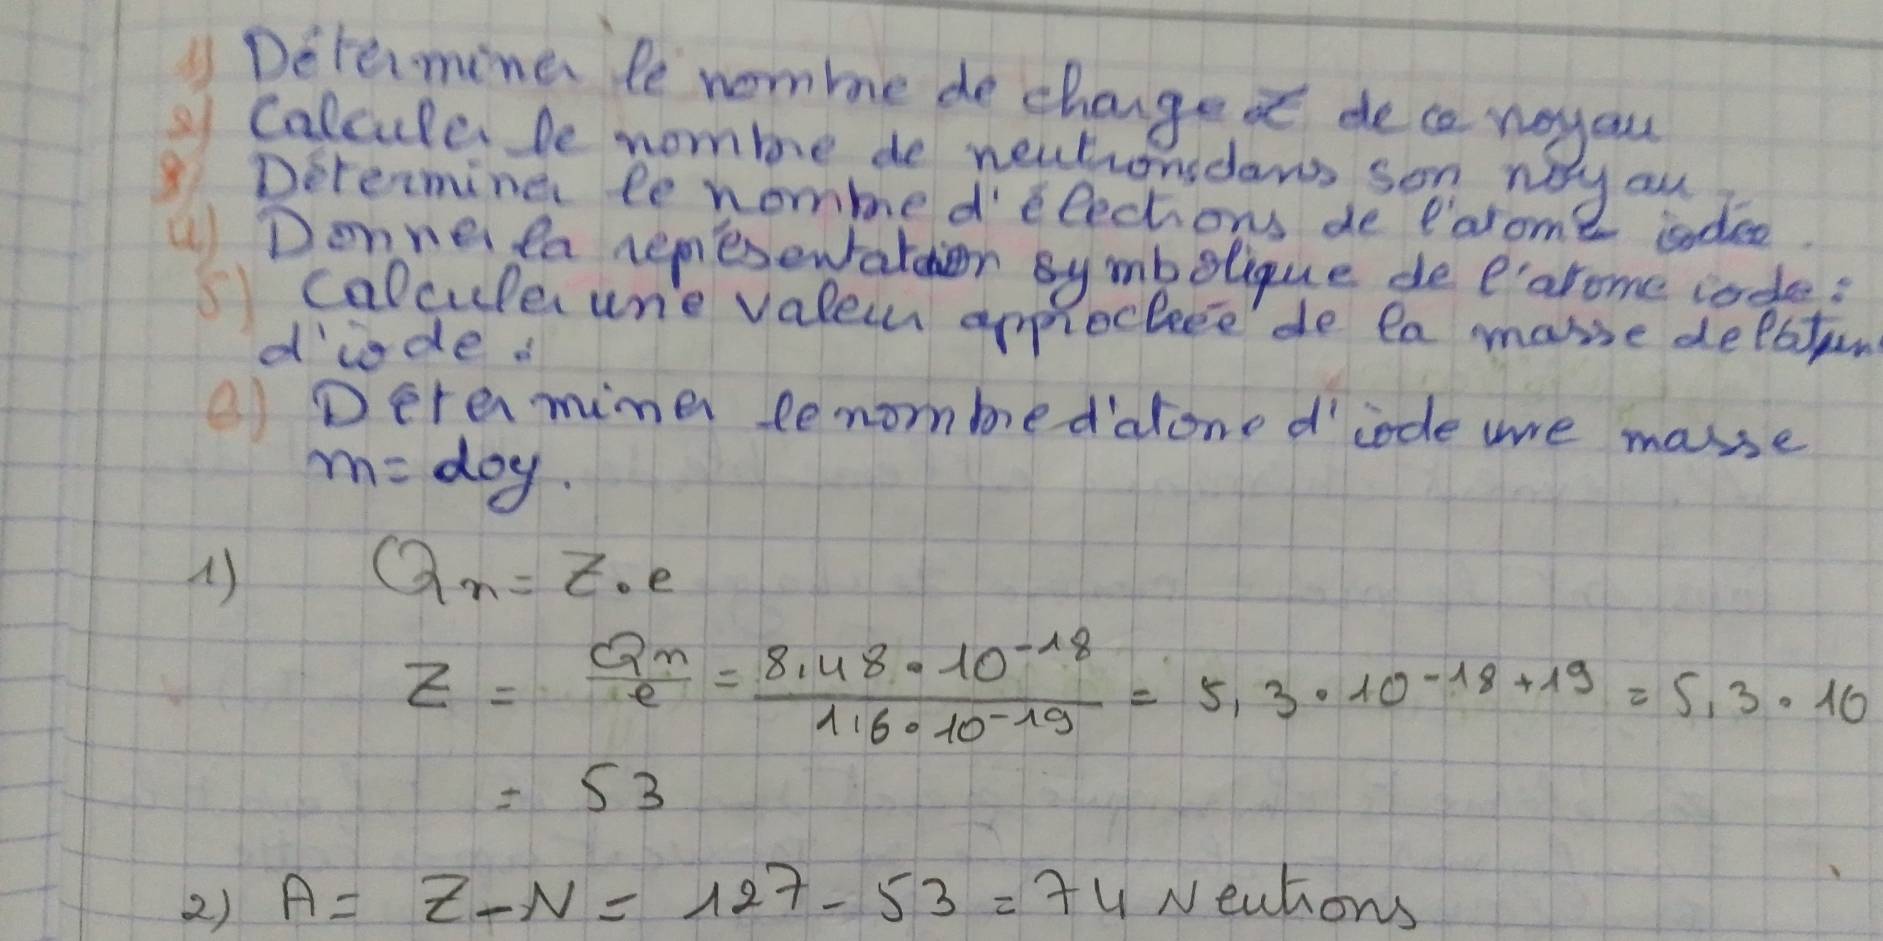 1) Déterminer le nombre de charge Z de ce noyau
2) Calculer le nombre de neutrons dans son noyau.
3) Déterminer le nombre d'élections de l'atome iodée.
4) Donner la représentation symbolique de l'atome iode :
5) Calculer une valeur approcheée de la masse de
d'iode :
6) Déterminer le nombre d'atone d'iode une masse
m = doy.
1) Qn = Z . e
Z = Qn/e = 8,48 • 10^-18 / 1,6 • 10^-19 = 5,3 • 10^-18+19 = 5,3 • 10
= 53
2) A = Z - N = 127 - 53 = 74 Neutrons